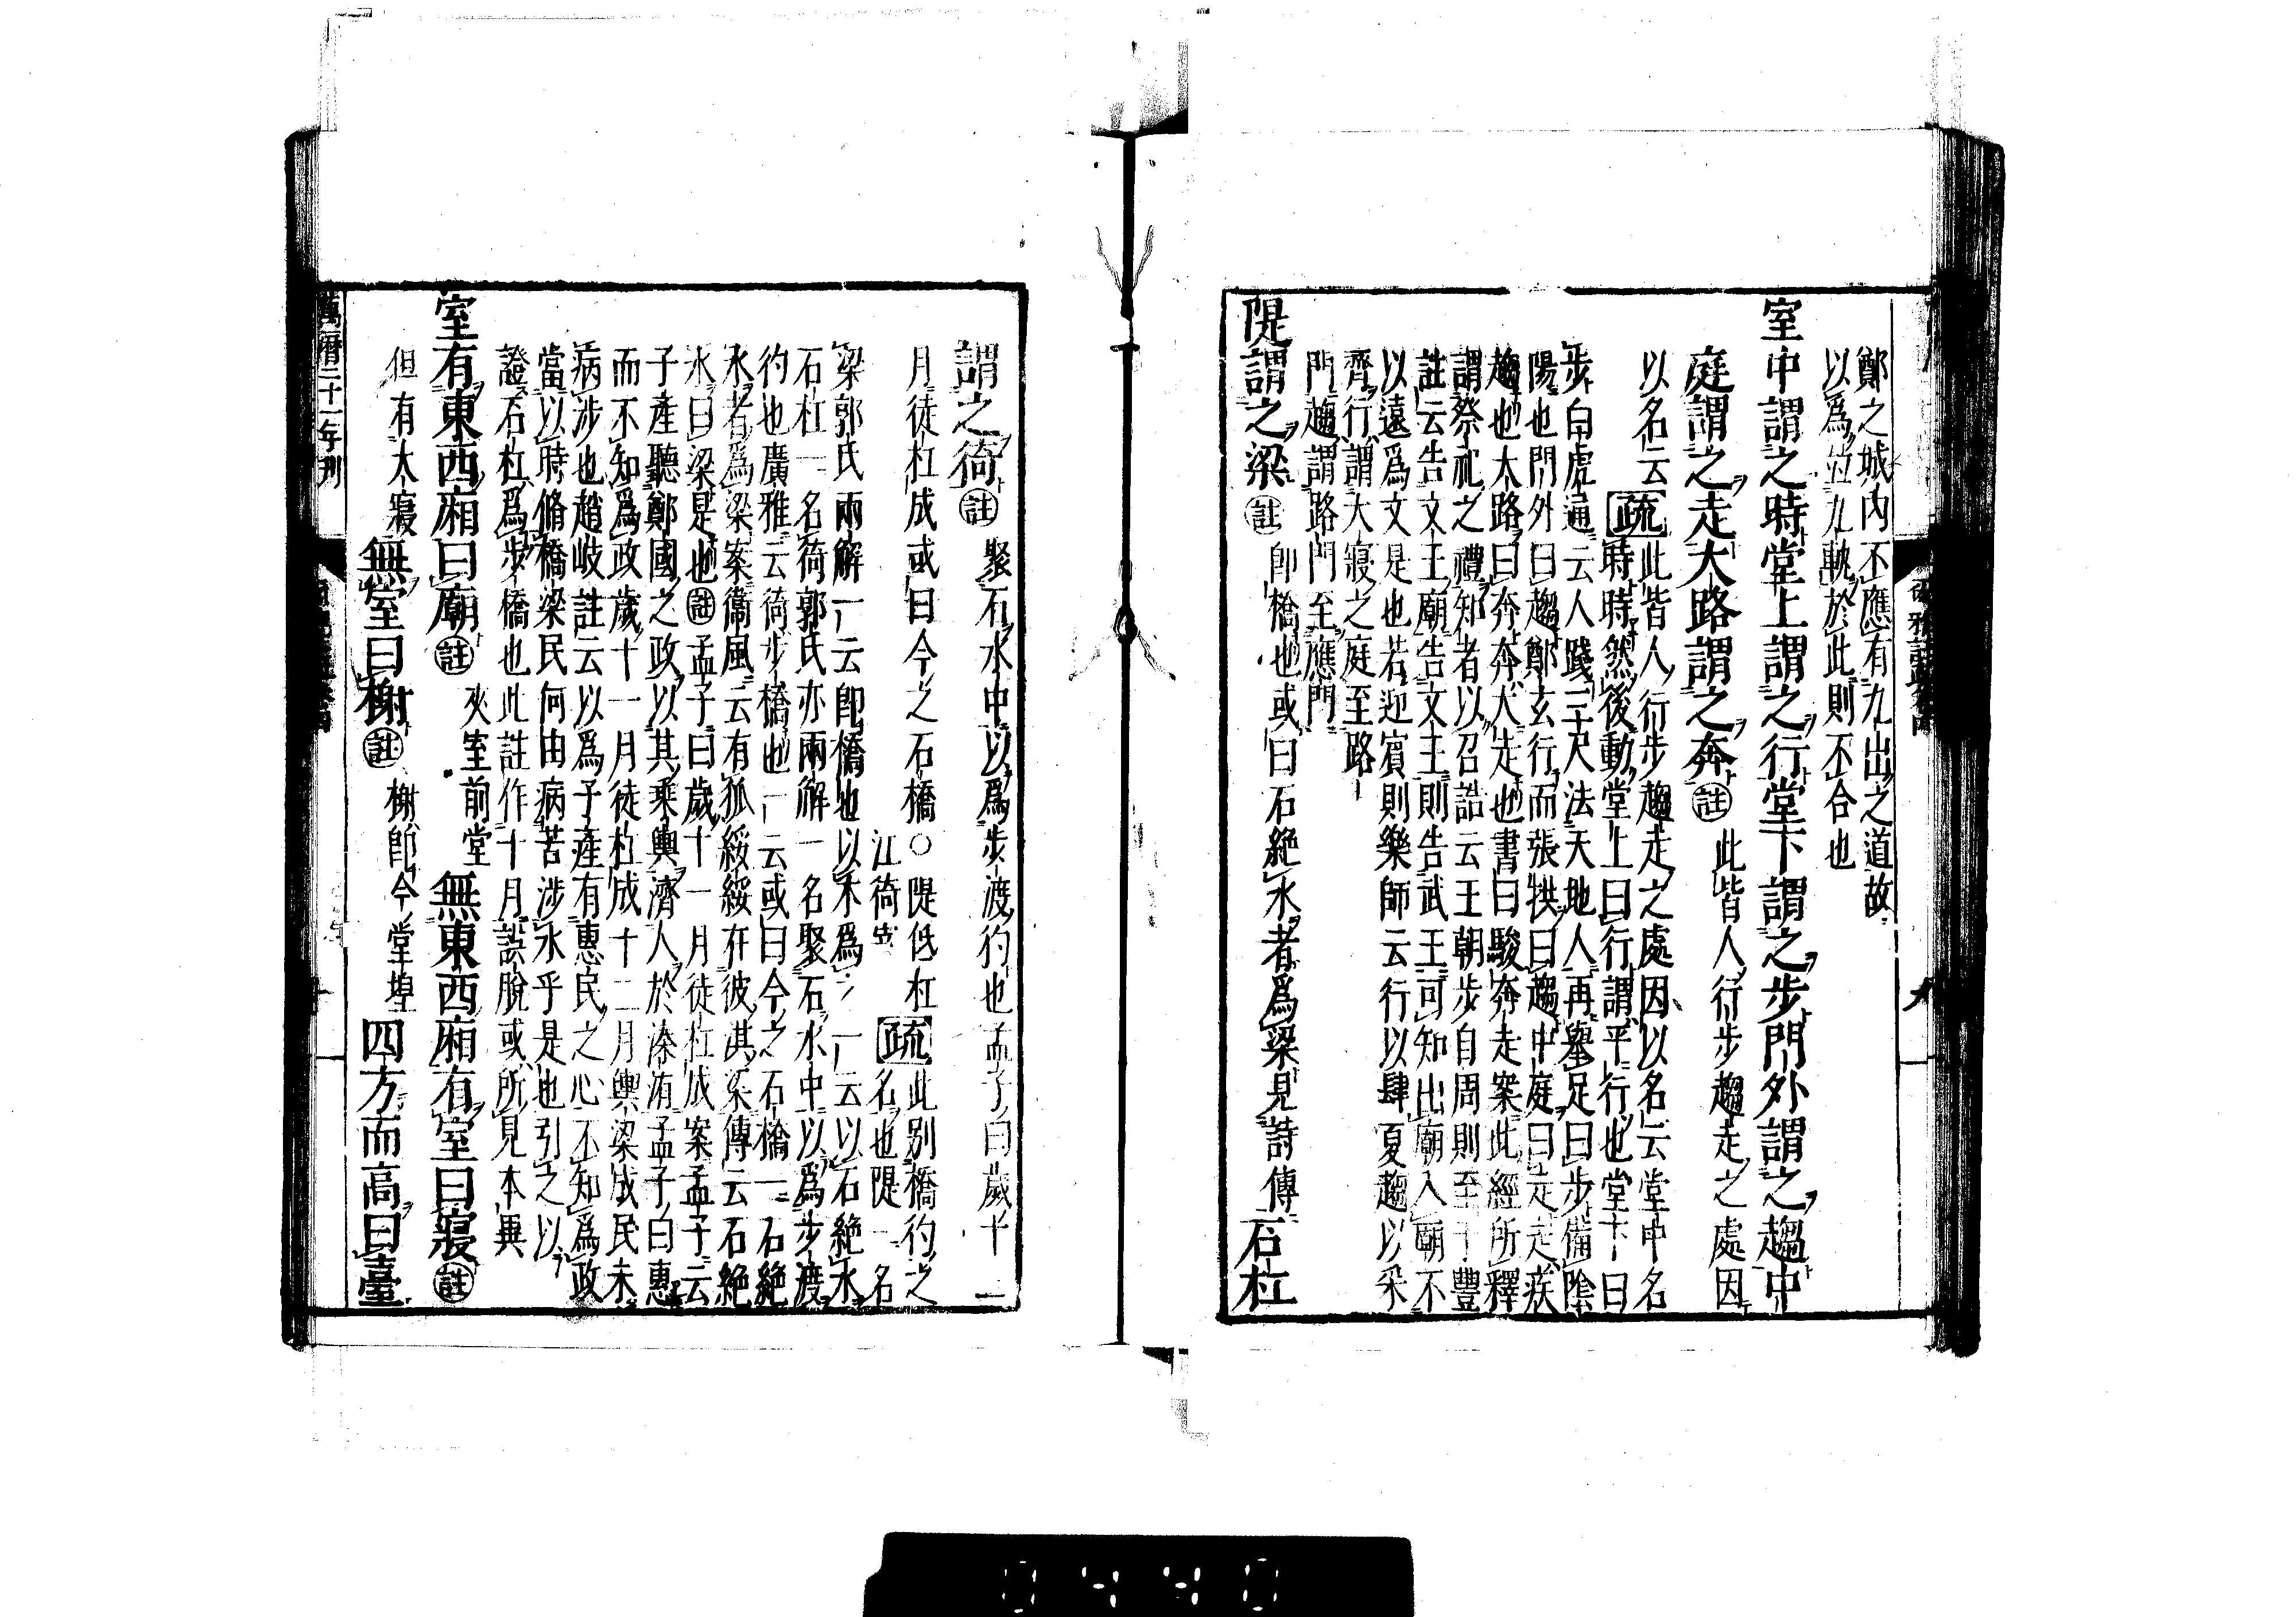 鄭之城内不應有九出之道故
以爲竝九軌於此則不合也
室中謂之時堂上謂之行堂下謂之步門外謂之趨中
庭謂之走大路謂之奔註此皆人行步趨走之處因
以名云疏此皆人行步趨走之處因以名云堂中名
時時然後動堂上曰行謂平行也堂下曰
步白虎通云人踐三尺法天地人再舉足曰步備陰
陽也門外曰趨鄭玄行而張拱曰趨中庭曰走走疾
趨也大路曰奔奔大走也書曰駿奔走案此經所釋
謂祭祀之禮知者以召誥云王朝步自周則至于豐
註云告文王廟告文王則告武王可知出廟入廟不
以遠爲文是也若迎賓則樂師云行以肆夏趨以采
齊行謂大寢之庭至路
門趨謂路門至應門
隄謂之梁註即橋也或曰石絶水者爲梁見詩傳石杠
謂之徛註聚石水中以爲步渡彴也孟子曰歲十一
月徒杠成或曰今之石橋○隄低杠江徛寄疏此别橋彴之名也隄一名
梁郭氏兩解一云即橋也以木爲一云以石絶水
石杠一名徛郭氏亦兩解一名聚石水中以爲步渡
彴也廣雅云徛步橋也一云或曰今之石橋一石絶
水者爲梁案衞風云有狐綏綏在彼淇梁傳云石絶
水曰梁是也註孟子曰歲十一月徒杠成案孟子云
子產聽鄭國之政以其乘輿濟人於溱洧孟子曰惠
而不知爲政歲十一月徒杠成十二月輿梁成民未
病涉也趙岐註云以爲子產有惠民之心不知爲政
當以時脩橋梁民何由病苦涉水乎是也引之以
證石杠爲步橋也此註作十月誤脫或所見本異
室有東西廂曰廟註夾室前堂無東西廂有室曰寢註
但有大寢無室曰榭註榭即今堂堭四方而高曰臺
萬曆二十一年刊